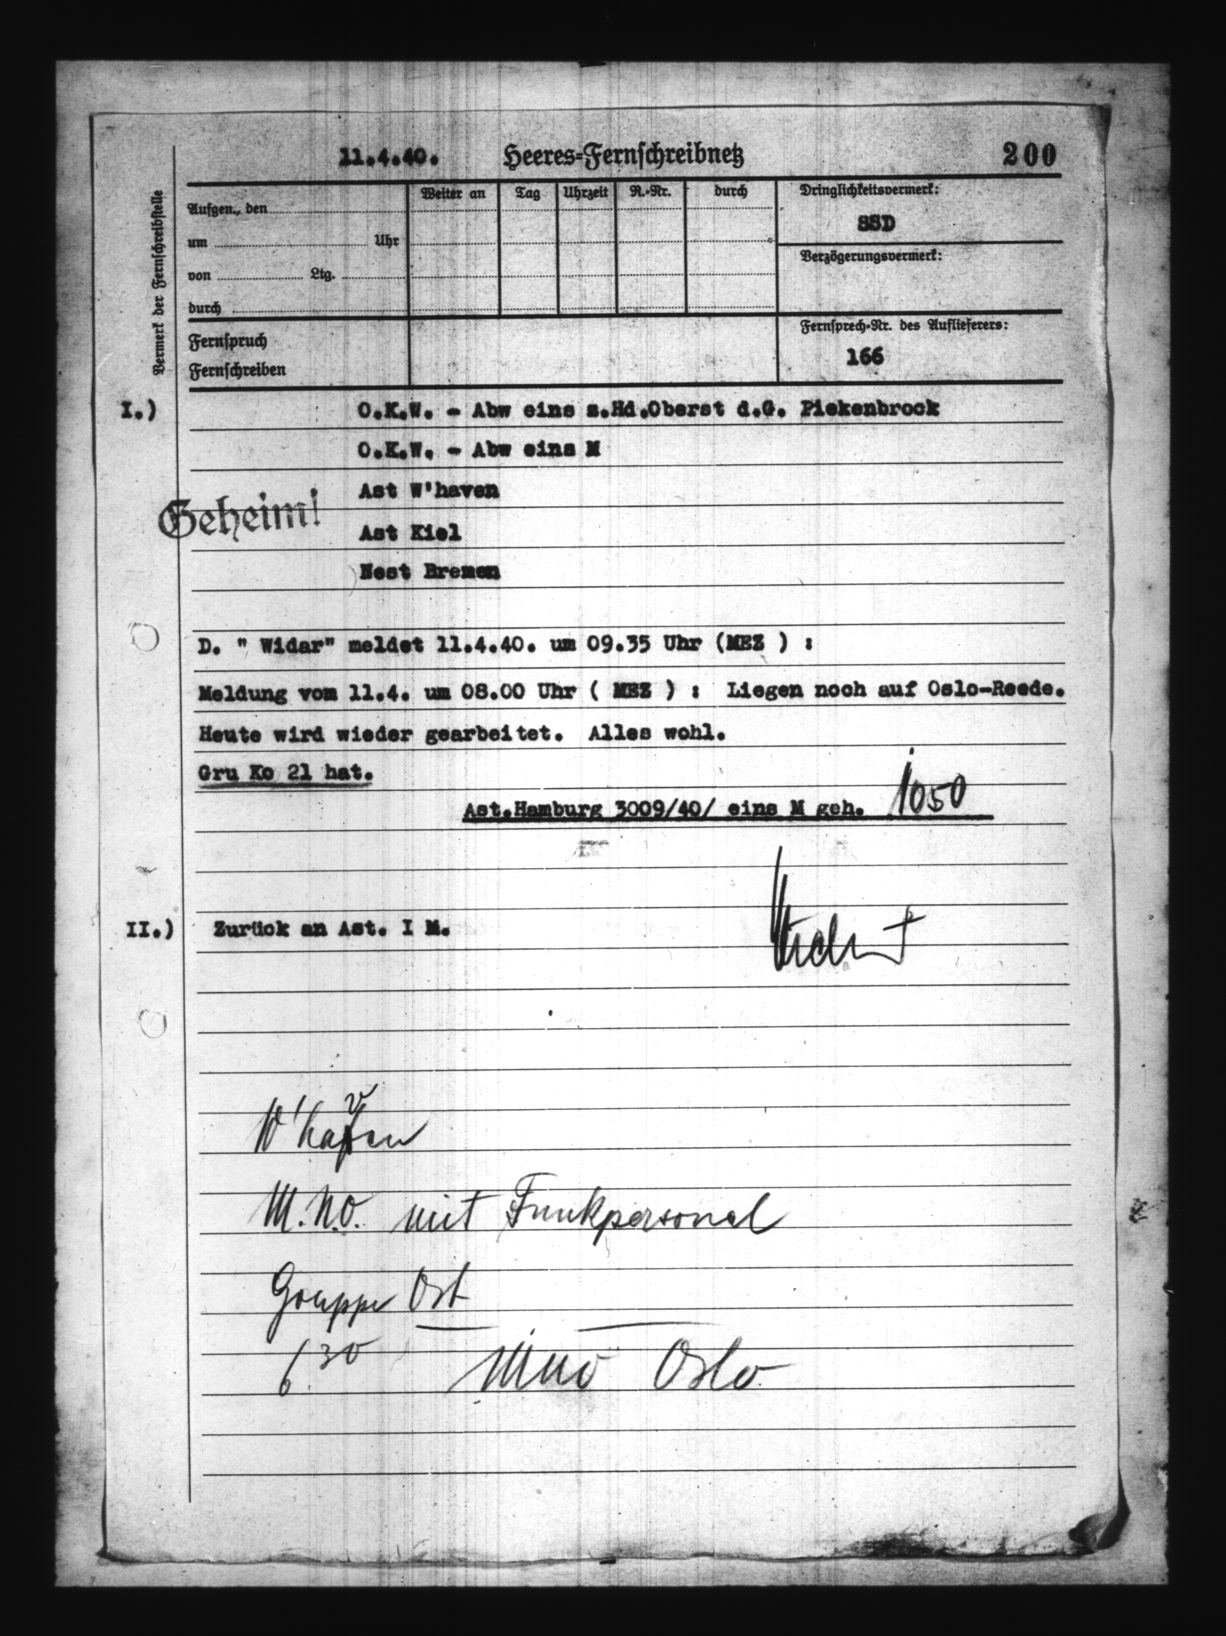 11.4.40. Heeres-Fernschreibnetz 200
Vermerk der Fernschreibstelle
Aufgen., den
um Uhr
von Ltg.
durch
Weiter an Tag Uhrzeit R.-Nr. durch
Dringlichkeitsvermerk:
SSD
Verzögerungsvermerk:
Fernspruch
Fernschreiben
Fernsprech-Nr. des Auflieferers:
166
I.) O.K.W. - Abw eins z.Hd.Oberst d.G. Piekenbrock
O.K.W. - Abw eins M
Ast W'haven
Geheim!
Ast Kiel
Nest Bremen
D. " Widar" meldet 11.4.40. um 09.35 Uhr (MEZ ) :
Meldung vom 11.4. um 08.00 Uhr ( MEZ ) : Liegen noch auf Oslo-Reede.
Heute wird wieder gearbeitet. Alles wohl.
Gru Ko 21 hat.
Ast.Hamburg 3009/40/ eins M geh. 1050
II.) Zurück an Ast. I M.
W'haven
M.N.O. mit Funkpersonal
Gruppe Ost
6.30 MNO Oslo